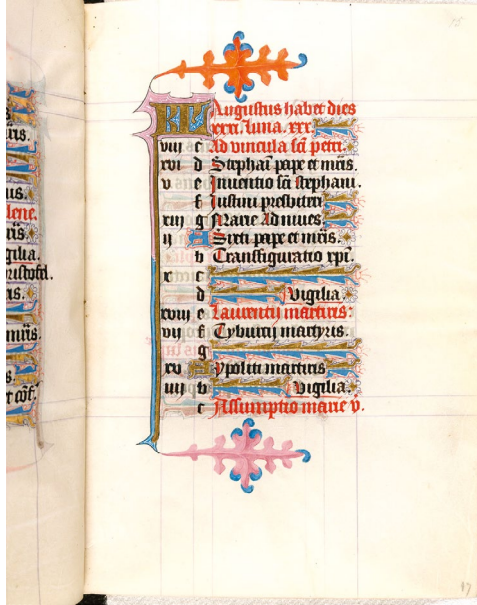 iris.
us.
lene.
gilia.
ris.
miris.
s.
15
KL Augustus habet dies
xxxi. luna. xxx.
viii c Ad vincula sci petri.
xvi d Stephani pape et mris.
v e Inuentio sci stephani.
f Iustini presbiteri
xiii g Marie Ad niues
ii A Sixti pape et mris.
b Transfiguratio xpi.
x c
d Vigilia
xviii e Laurentij martiris:
vii f Tyburcij martyris.
g
xv A Ypoliti martiris
iiii b Vigilia
c Assumptio marie v.
17